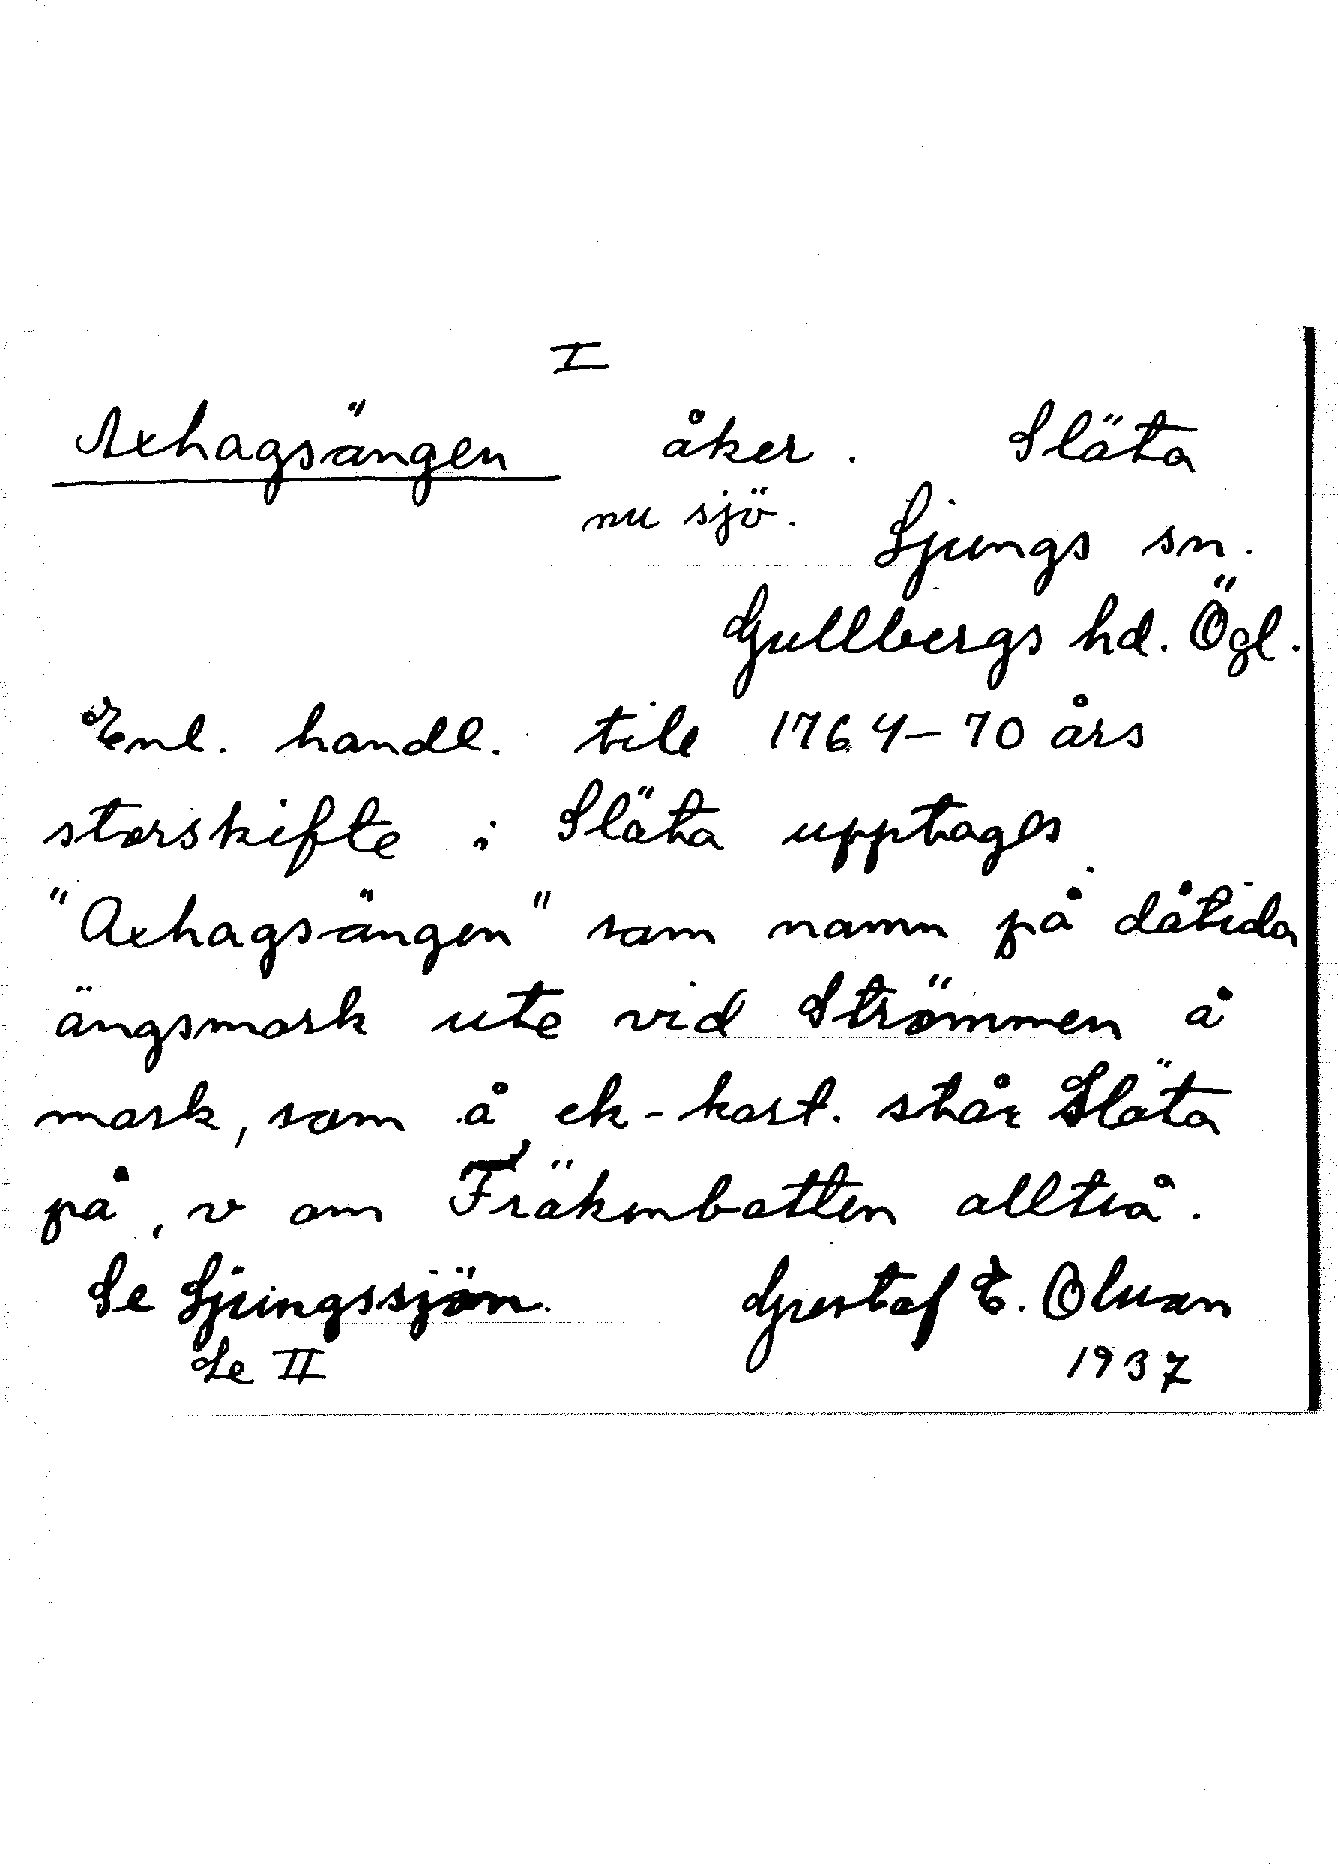 I
Axhagsängen åker. Släta
nu sjö. Ljungs sn.
Gullbergs hd. Ögl.
Enl. handl. till 1764–70 års
storskifte i Släta upptages
"Axhagsängen" som namn på dåtida
ängsmark ute vid Strömmen å
mark, som å ek-kart. står Släta
på, v om Fräkenbotten alltså.
Se Ljungssjön. Gustaf E. Olsson
Se II 1937